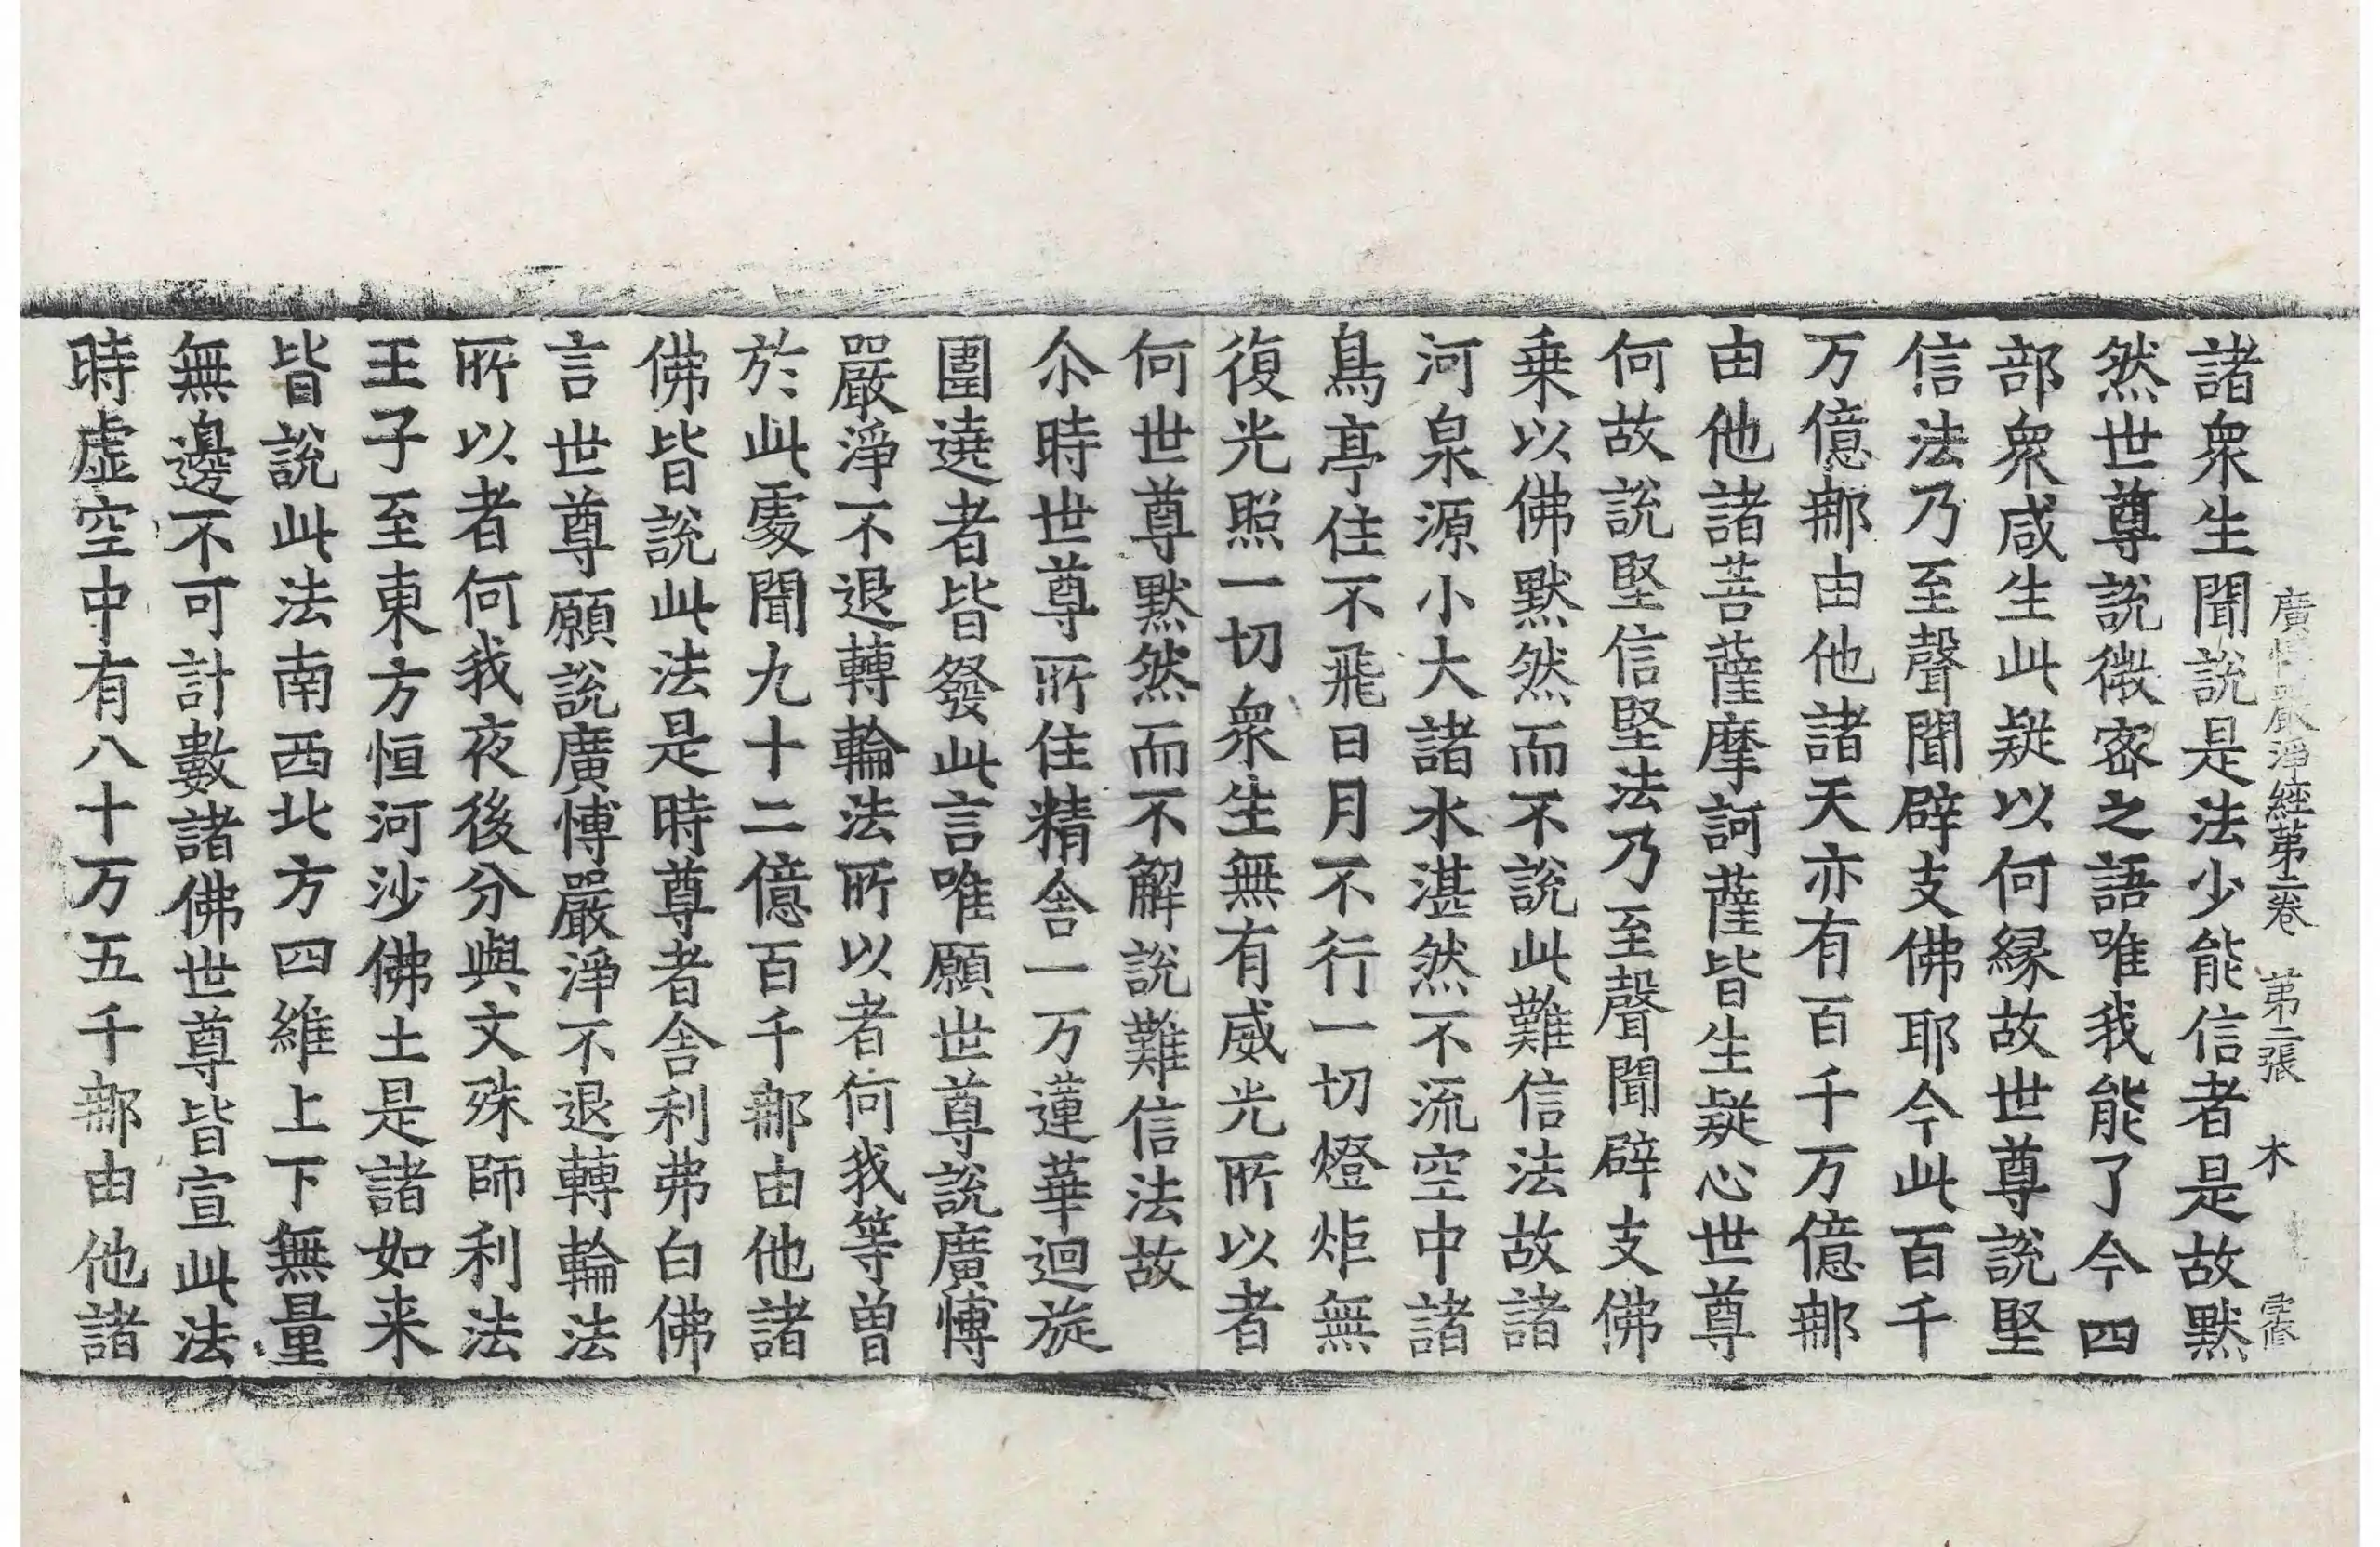 廣博嚴淨經第二卷 第二張 木
諸衆生聞說是法少能信者是故默
然世尊說微密之語唯我能了今四
部衆咸生此疑以何緣故世尊說堅
信法乃至聲聞辟支佛耶今此百千
万億那由他諸天亦有百千万億那
由他諸菩薩摩訶薩皆生疑心世尊
何故說堅信堅法乃至聲聞辟支佛
乗以佛默然而不說此難信法故諸
河泉源小大諸水湛然不流空中諸
鳥亭住不飛日月不行一切燈炬無
復光照一切衆生無有威光所以者
何世尊默然而不解說難信法故
尒時世尊所住精舎一万蓮華迴旋
圍遶者皆發此言唯願世尊說廣博
嚴淨不退轉輪法所以者何我等曾
於此處聞九十二億百千那由他諸
佛皆說此法是時尊者舎利弗白佛
言世尊願說廣博嚴淨不退轉輪法
所以者何我夜後分與文殊師利法
王子至東方恒河沙佛土是諸如来
皆說此法南西北方四維上下無量
無邊不可計數諸佛世尊皆宣此法
時虛空中有八十万五千那由他諸